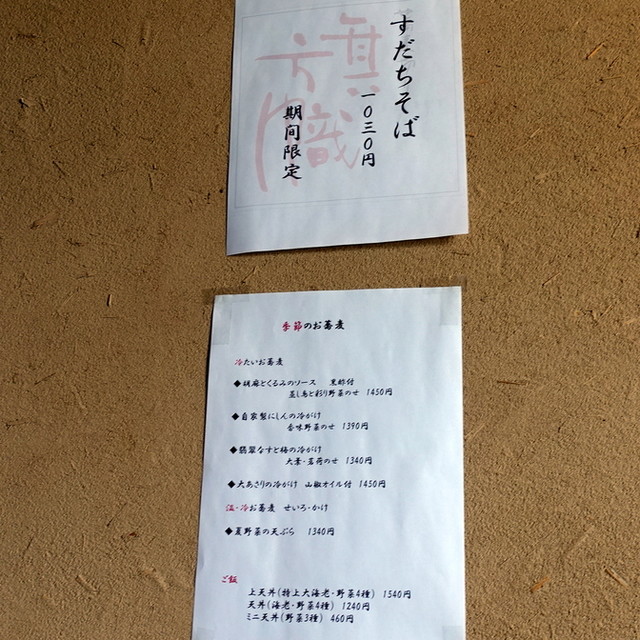 すだちそば
一〇三〇円
期間限定
季節のお蕎麦
冷たいお蕎麦
◆胡麻とくるみのソース 黒酢付
蒸し鳥と彩り野菜のせ 1450円
◆自家製にしんの冷がけ
香味野菜のせ 1390円
◆翡翠なすと梅の冷がけ
大葉・茗荷のせ 1340円
◆大あさりの冷がけ 山椒オイル付 1450円
温・冷お蕎麦 せいろ・かけ
◆夏野菜の天ぷら 1340円
ご飯
上天丼(特上大海老・野菜4種) 1540円
天丼(海老・野菜4種) 1240円
ミニ天丼(野菜3種) 460円